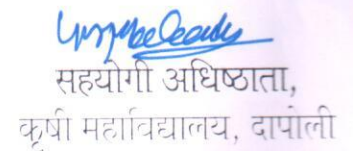 सहयोगी अधिष्ठाता,
कृषी महाविद्यालय, दापोली